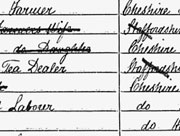 Farmer Cheshire
Farmers Wife Staffordshire
do Daughter Cheshire
Tea Dealer Staffordshire
Cheshire
Labour do
do